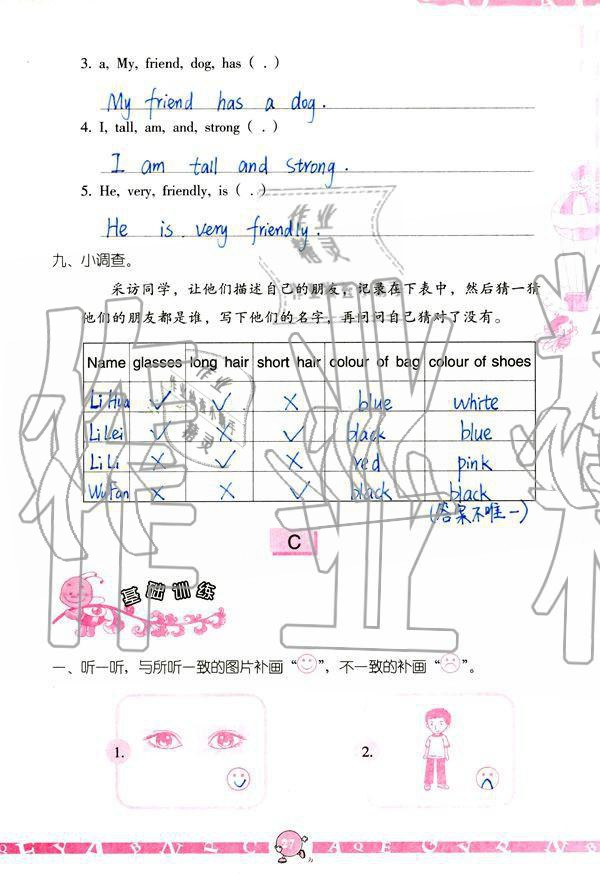 3. a, My, friend, dog, has ( . )
My friend has a dog.
4. I, tall, am, and, strong ( . )
I am tall and strong.
5. He, very, friendly, is ( . )
He is very friendly.
九、小调查。
采访同学，让他们描述自己的朋友，记录在下表中，然后猜一猜
他们的朋友都是谁，写下他们的名字，再问问自己猜对了没有。
Name glasses long hair short hair colour of bag colour of shoes
Li Hua ✓ ✓ × blue white
Li Lei ✓ × ✓ black blue
Li Li × ✓ × red pink
Wu Fan × × ✓ black black
(答案不唯一)
C
基础训练
一、听一听，与所听一致的图片补画“☺”，不一致的补画“☹”。
1. 2.
27